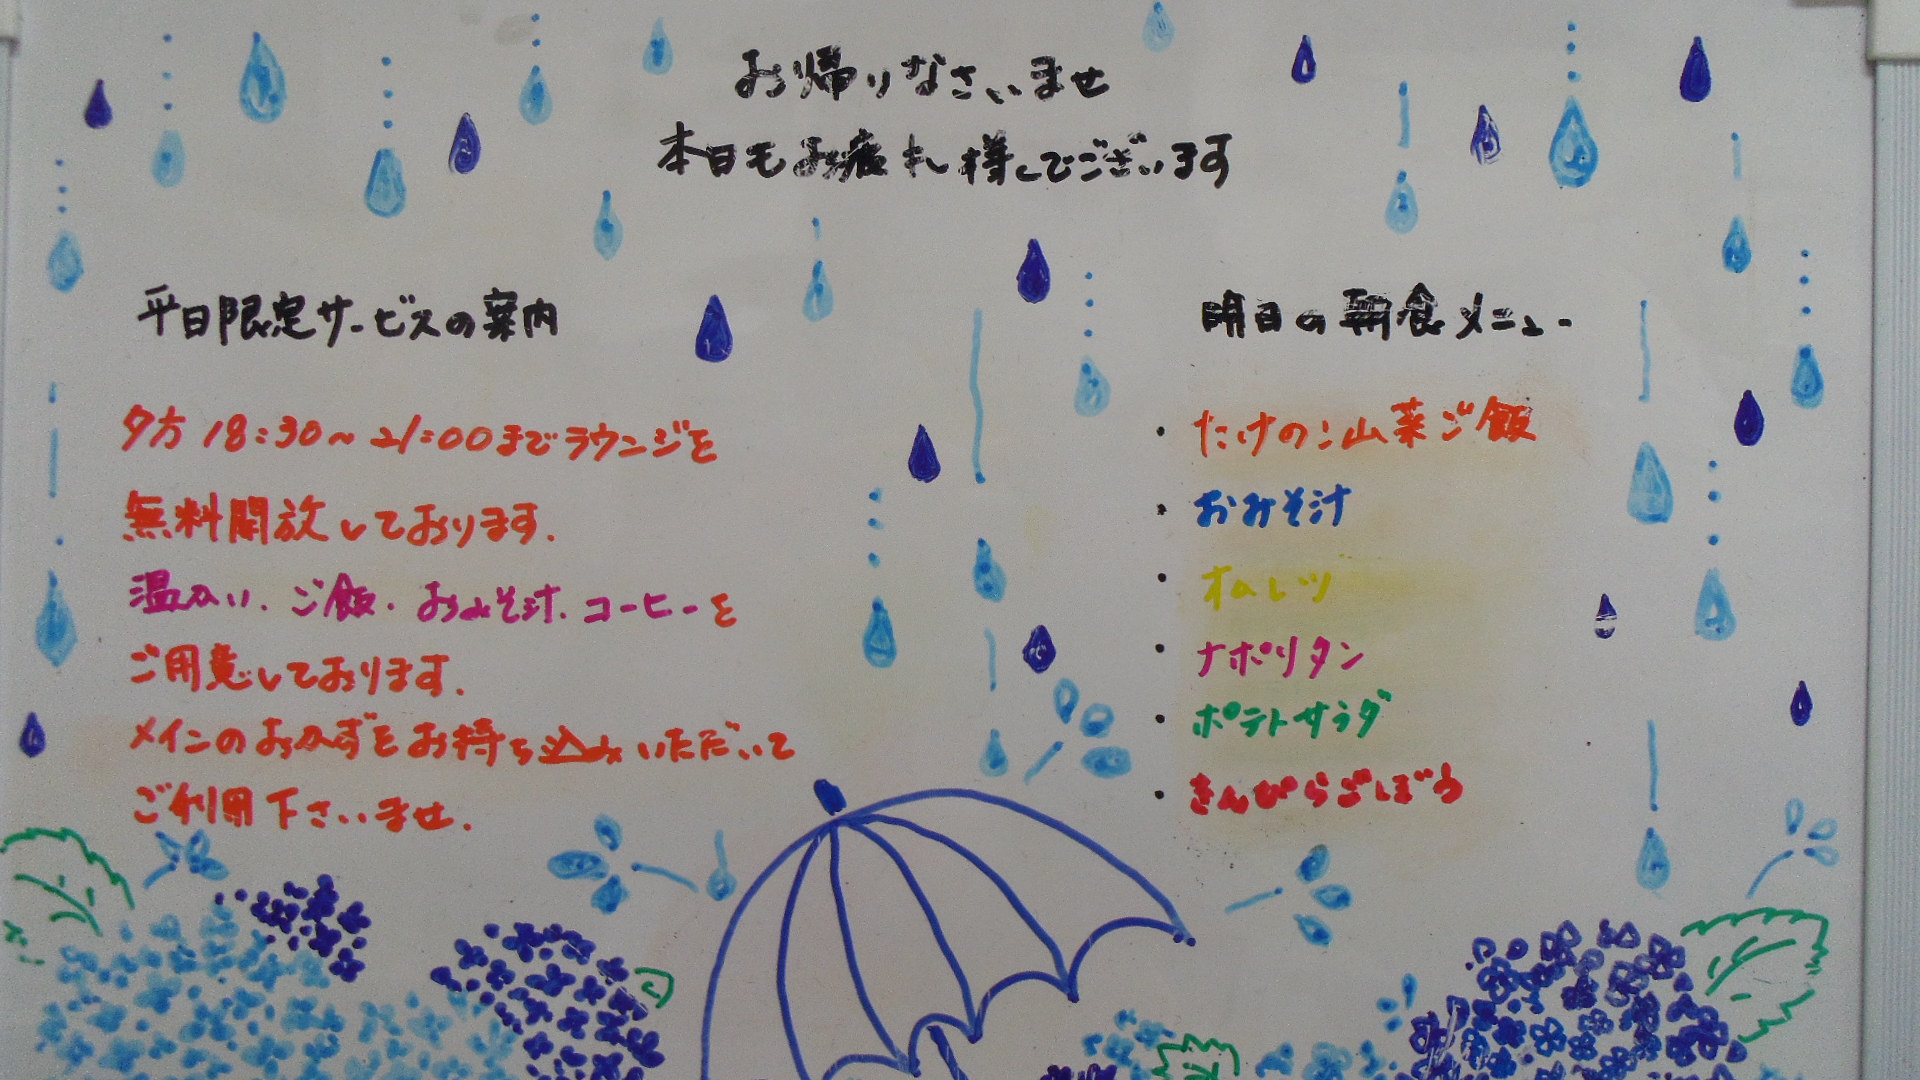 お帰りなさいませ
本日もお疲れ様でございます
平日限定サービスの案内
夕方18:30～21:00までラウンジを
無料開放しております.
温かい.ご飯.おみそ汁.コーヒーを
ご用意しております.
メインのおかずをお持ち込みいただいて
ご利用下さいませ.
明日の朝食メニュー
・たけのこ山菜ご飯
・おみそ汁
・オムレツ
・ナポリタン
・ポテトサラダ
・きんぴらごぼう